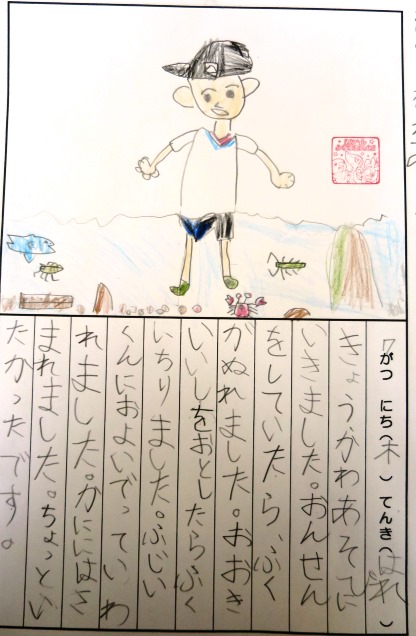 7がつ にち(木)てんき(はれ)
きょうかわあそびに
いきました。おんせん
をしていたら、ふく
がぬれました。おおき
いいしをおとしたらふく
いちりました。ふじい
くんにおよいでっていわ
れました。かににはさ
まれました。ちょっとい
たかったです。